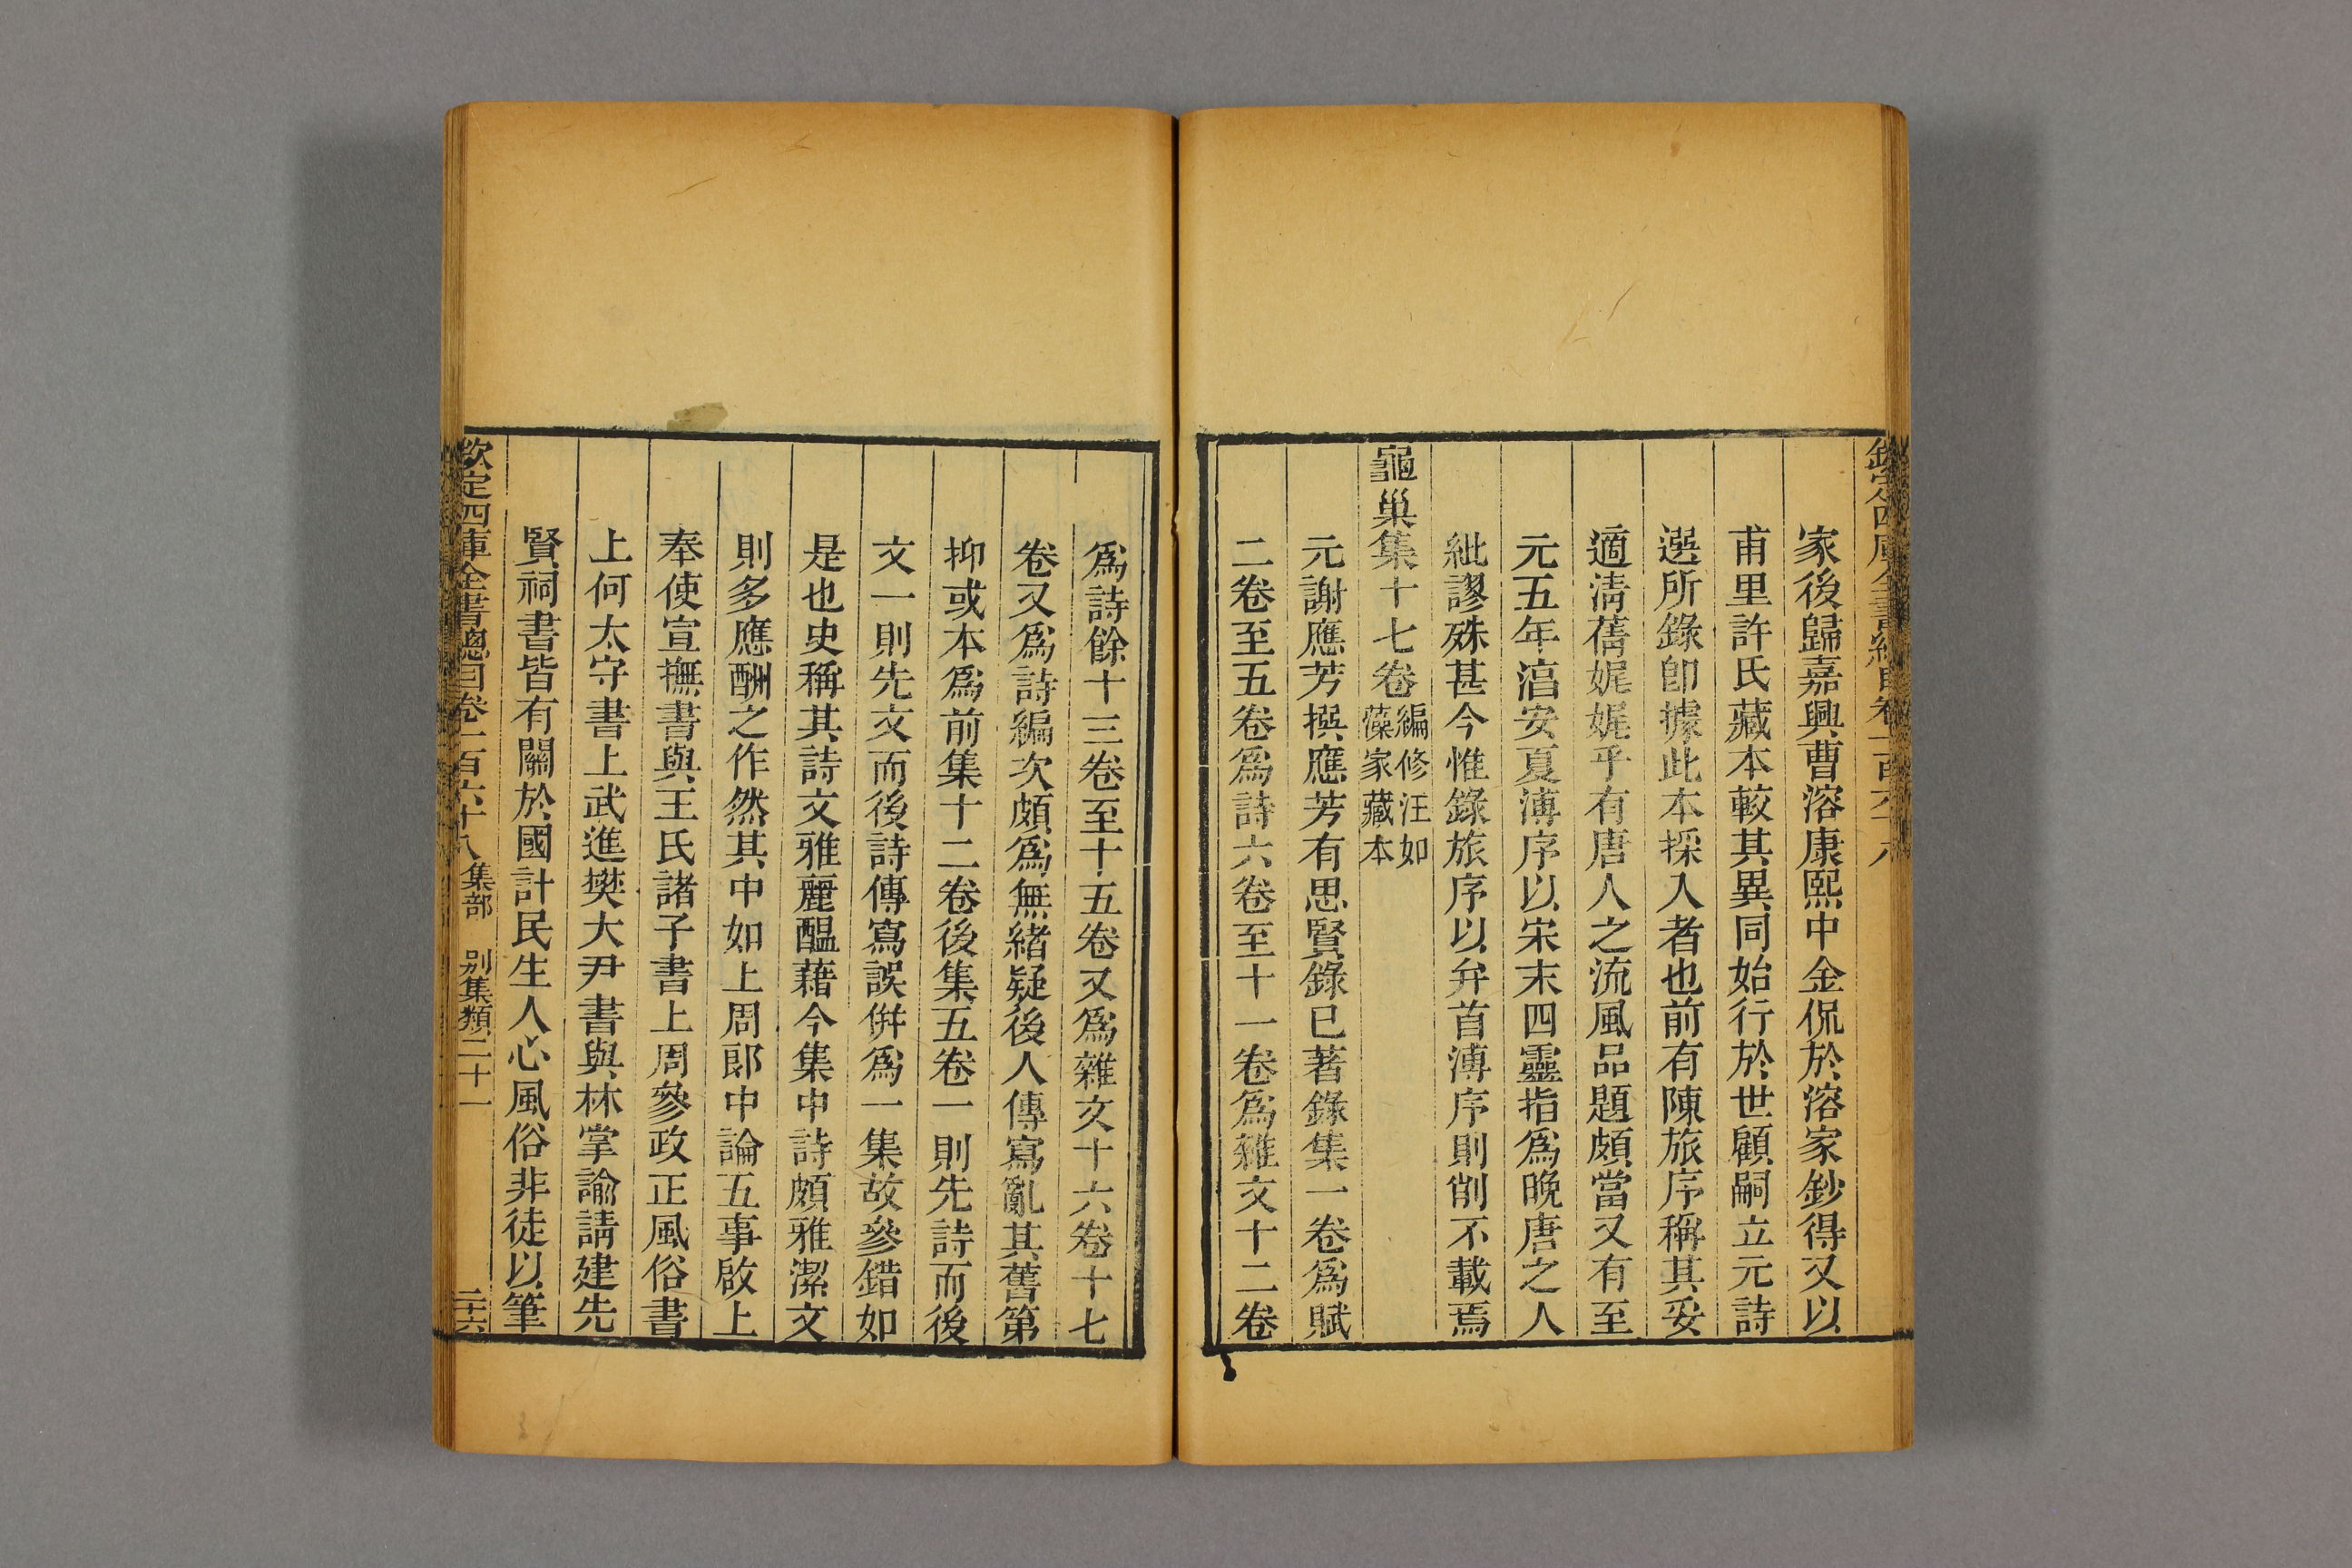 家後歸嘉興曹溶康熙中金侃於溶家鈔得又以
甫里許氏藏本較其異同始行於世顧嗣立元詩
選所錄卽據此本採入者也前有陳旅序稱其妥
適淸蒨娓娓乎有唐人之流風品題頗當又有至
元五年湻安夏溥序以宋末四靈指爲晚唐之人
紕謬殊甚今惟錄旅序以弁首溥序則削不載焉
龜巢集十七卷編修汪如藻家藏本
元謝應芳撰應芳有思賢錄已著錄集一卷爲賦
二卷至五卷爲詩六卷至十一卷爲雜文十二卷
爲詩餘十三卷至十五卷又爲雜文十六卷十七
卷又爲詩編次頗爲無緖疑後人傳寫亂其舊第
抑或本爲前集十二卷後集五卷一則先詩而後
文一則先文而後詩傳寫誤倂爲一集故參錯如
是也史稱其詩文雅麗醞藉今集中詩頗雅潔文
則多應酬之作然其中如上周郎中論五事啟上
奉使宣撫書與王氏諸子書上周參政正風俗書
上何太守書上武進樊大尹書與林掌諭請建先
賢祠書皆有關於國計民生人心風俗非徒以筆
欽定四庫全書總目卷一百六十八 集部 別集類二十一 二十六